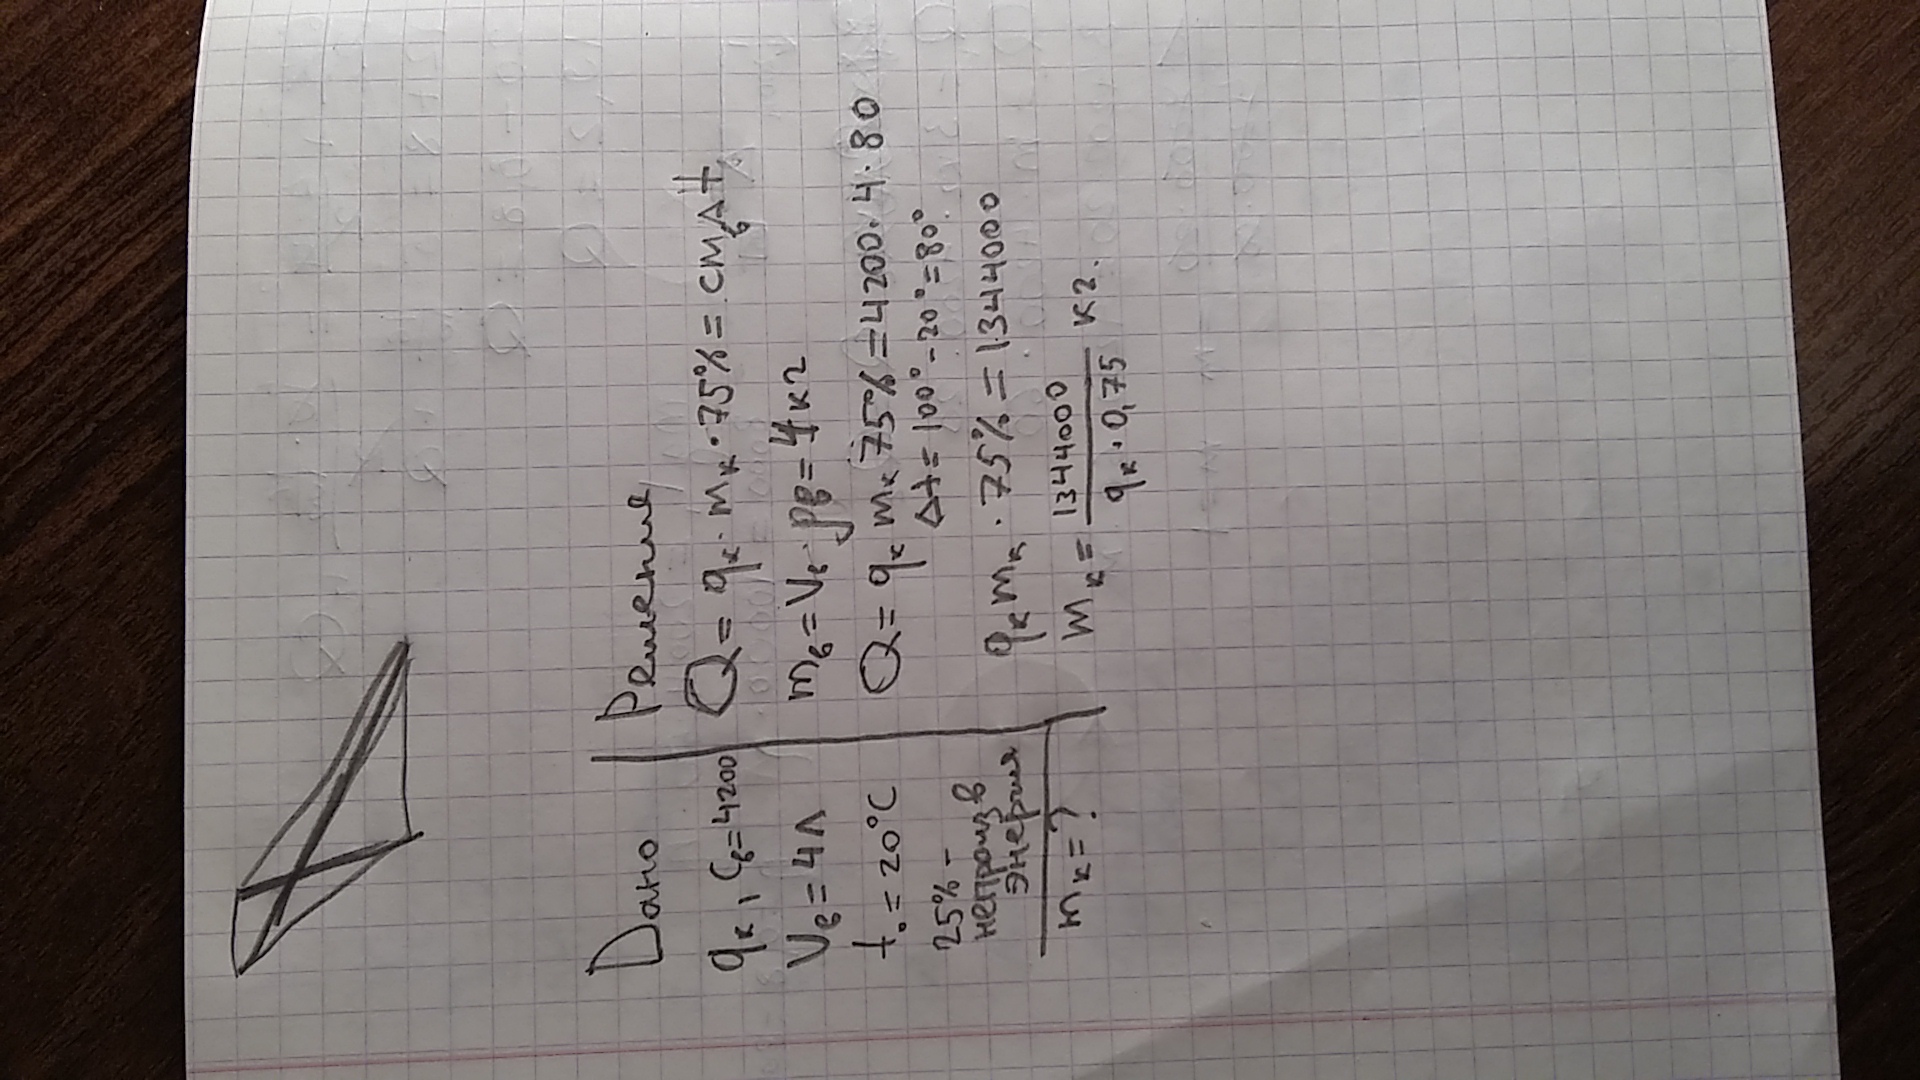 Дано
qк, Cв=4200
Vв=4л
t₀=20°C
25% -
непроизв
энергия
mк=?
Решения
Q=qк·mк·75%=cmвΔt
mв=Vв·ρв=4кг
Q=qк mк 75%=4200·4·80
Δt=100°-20°=80°
qк mк·75%=1344000
mк=1344000/qк·0,75 кг.